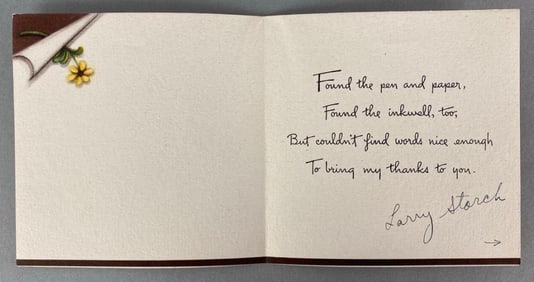 Found the pen and paper,
Found the inkwell, too;
But couldn't find words nice enough
To bring my thanks to you.
Larry Storch
→